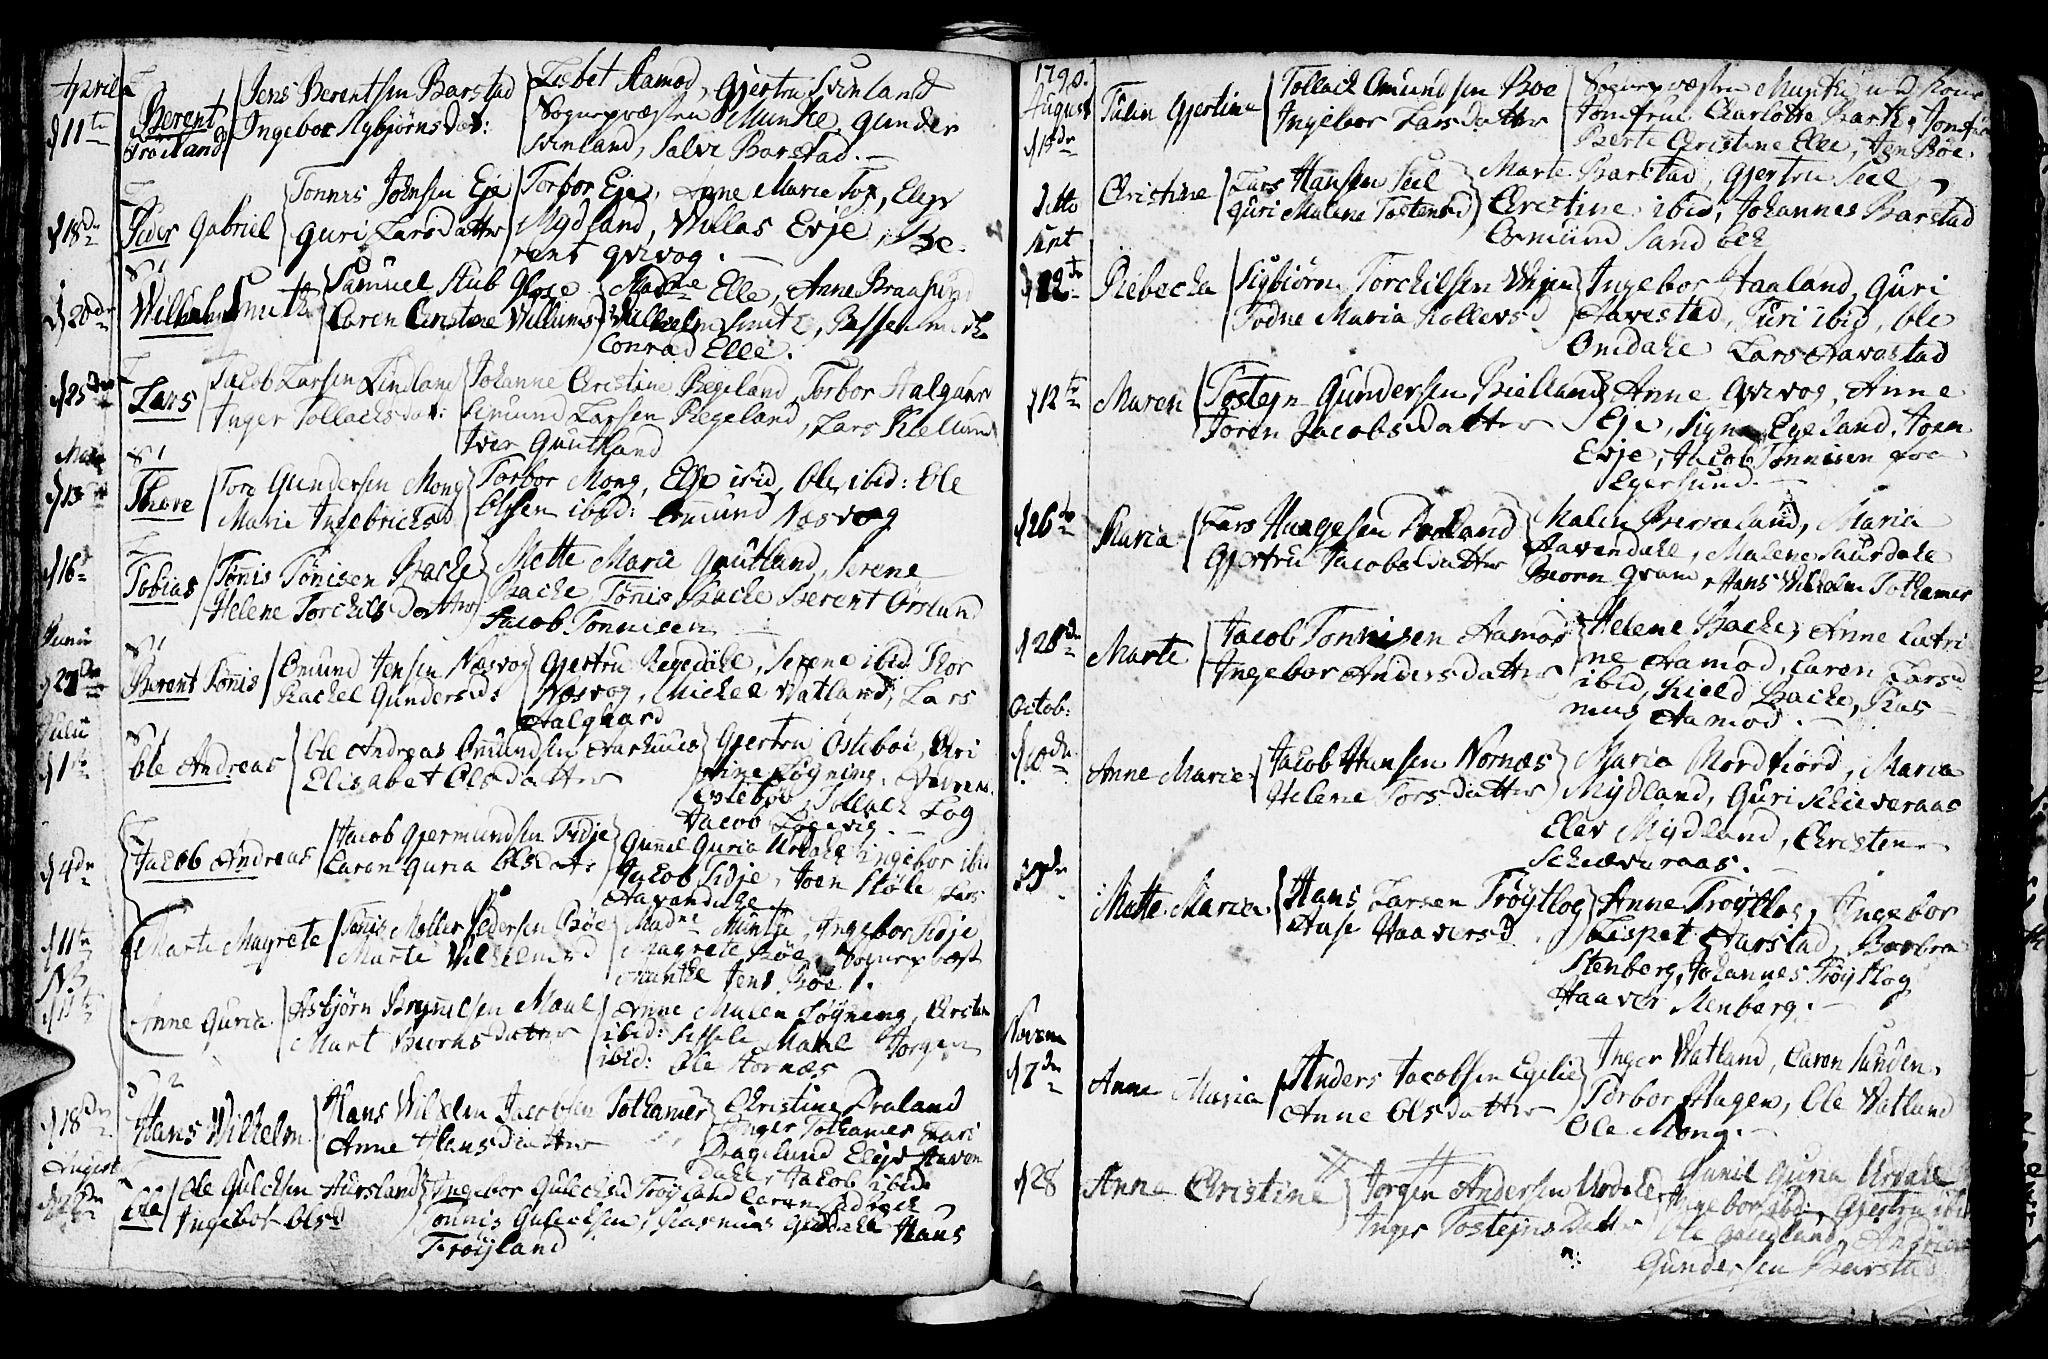 April
d 11te
Berent
Jens Berentsen Barstad
Ingebor Asbjørnsdat:
Lisbet Aamod, Gjertru Svinland
Sognepræsten Munke, Gunder
Svinland, Salve Barstad.
d 18de
Peder Gabriel
Tonnis Johnsen Eje
Guri Larsdatter
Torbor Eje, Anne Marie Tox, Eleir
Mydland, Villas Evje, Be-
rent Qvivog.
Wilhelm Smith
Samuel Stub
Caren Christine Willumsd
Madme Elle, Anne
Wilhelm Smith,
Conrad Elle.
d 25de
Lars
Jacob Larsen Lindland
Inger Tollachsdat:
Johanne Christine Regeland, Torbor Aalgaar
Larsen Regeland, Lars Kielland
Iver Gruthland
d 13
Thore
Tore Gundersen Mong
Marie Ingebrichtsd
Torbor Mong, Else ibid, Ole ibid: Ole
Olsen ibid: Omund Næsvog
d 16
Tobias
Tønis Tønisen Bache
Helene Torchilsdatter
Mette Marie Grutland, Serene
Bache, Tønis Bache Berent Ørslund
Jacob Tønnisen
Junii
Berent Tønis
Omund Jensen Næsvog
Rachel Gundersd:
Gjertru Regedahl, Serene ibid Thor
Næsvog, Michel Vatland, Lars
Aalgaard
Julii
d 1te
Ole Andreas
Ole Andreas Omundsen Aarhuus
Elisabet Olsdatter
Gjertru Østebøe, Chri
stine Løgning,
Estebøe, Tollach Løg
Jacob Løgevig.
d 4de
Jacob Andreas
Jacob Gjermundsen Tidje
Caren Guria Olsdatr
Gunil Guria Urdahl ingebor ibid
Jacob Sidje, Joen Støle Lars
Aavendahl
d 11te
Marte Magrete
Tønis Møller Pedersen Bøe
Marte Wilhelmsd
Madme Munke, Ingebor Sidje
Magrete Bøe, Sogneprest
Munke Jens Bøe.
d 11te
Anne Guria
Asbjørn Brynnelsen Maal
Mart Biørnsdatter
Anne Malen Løgning, Christen
ibid: Sissele Maal Jørgen
ibid: Ole Hornæs
d 18de
Hans Wilhelm
Hans Wilhelm Jacobsen Tothamer
Anne Hansdatter
Christine Draland
Inger Tothamer Guri
Dragelund Elijs Aaven
dahl, Jacob ibid
August
Ole
Ole Gulchsen Aarsland
Ingebor Olsd
Ingebor Gulchsd Trøyland Caren Sadbech
Tonnis Gulichsen, Rasmus Gydahl Hans
Trøyland
1790.
August
Tølin Gjertine
Tollach Omundsen Boe
Ingebor Larsdatter
Sognepræsten Munke med Kone
Jomfrue Charlotte Barth, Jomfrue
Berte Christine Elle, Jen Bøe.
ditto
Christine
Lars Hansen Seil
Guri Malene Tostensd
Marte Barstad, Gjertru Seil
Christine ibid, Johannes Barstad
Omund Sandbek
Sept
d 12te
Rebecha
Sigbiørn Torchilsen
Todne Maria Rollevsd
Ingebor Haaland, Guri
Aarstad, Turi ibid, Ole
Omdahl Lars Aarstad
d 12te
Maren
Tostejn Gundersen Bielland
Toren Jacobsdatter
Anne Qvivog, Anne
Eje, Signe Egeland, Joen
Evje, Jacob Tønnisen
Egersund.
d 26de
Maria
Lars Haagesen
Gjertru Jacobsdatter
Malin Birkeland, Maria
Aavendahl, Malene Saurdahl
Biorn Qvam, Hans Wilhelm Tothamer
d 28de
Marte
Jacob Tonnisen Aamod
Ingebor Andersdatter
Helene Bache, Anne Catri
ne Aamod, Caren Larsd
ibid, Kield Bache, Ras
mus Aamod.
Octob:
d 10de
Anne Marie
Jacob Hansen Nornæs
Helene Torsdatter
Maria Nordfiord, Maria
Mydland, Guri Schieveraas
Elev Mydland, Christen
Schieveraas.
Mette Maria
Hans Larsen Trøytlog
Aase Haaversd
Anne Trøytlog, Ingebor
Lispet Aarstad, Barbra
Stenberg, Johannes Trøytlog
Haaver Stenberg.
Novem
d 7de
Anne Maria
Anders Jacobsen Egelie
Anne Olsdatter
Inger Vatland, Caren Sanden,
Torbor Hagen, Ole Vatland
Ole Mong.
d 28
Anna Christine
Jørgen Andersen Urdahl
Inger Tostejnsdatter
Gunil Guria Urdahl
Ingebor ibid: Gjertru ibid
Ole Andreas
Gundersen Barstad